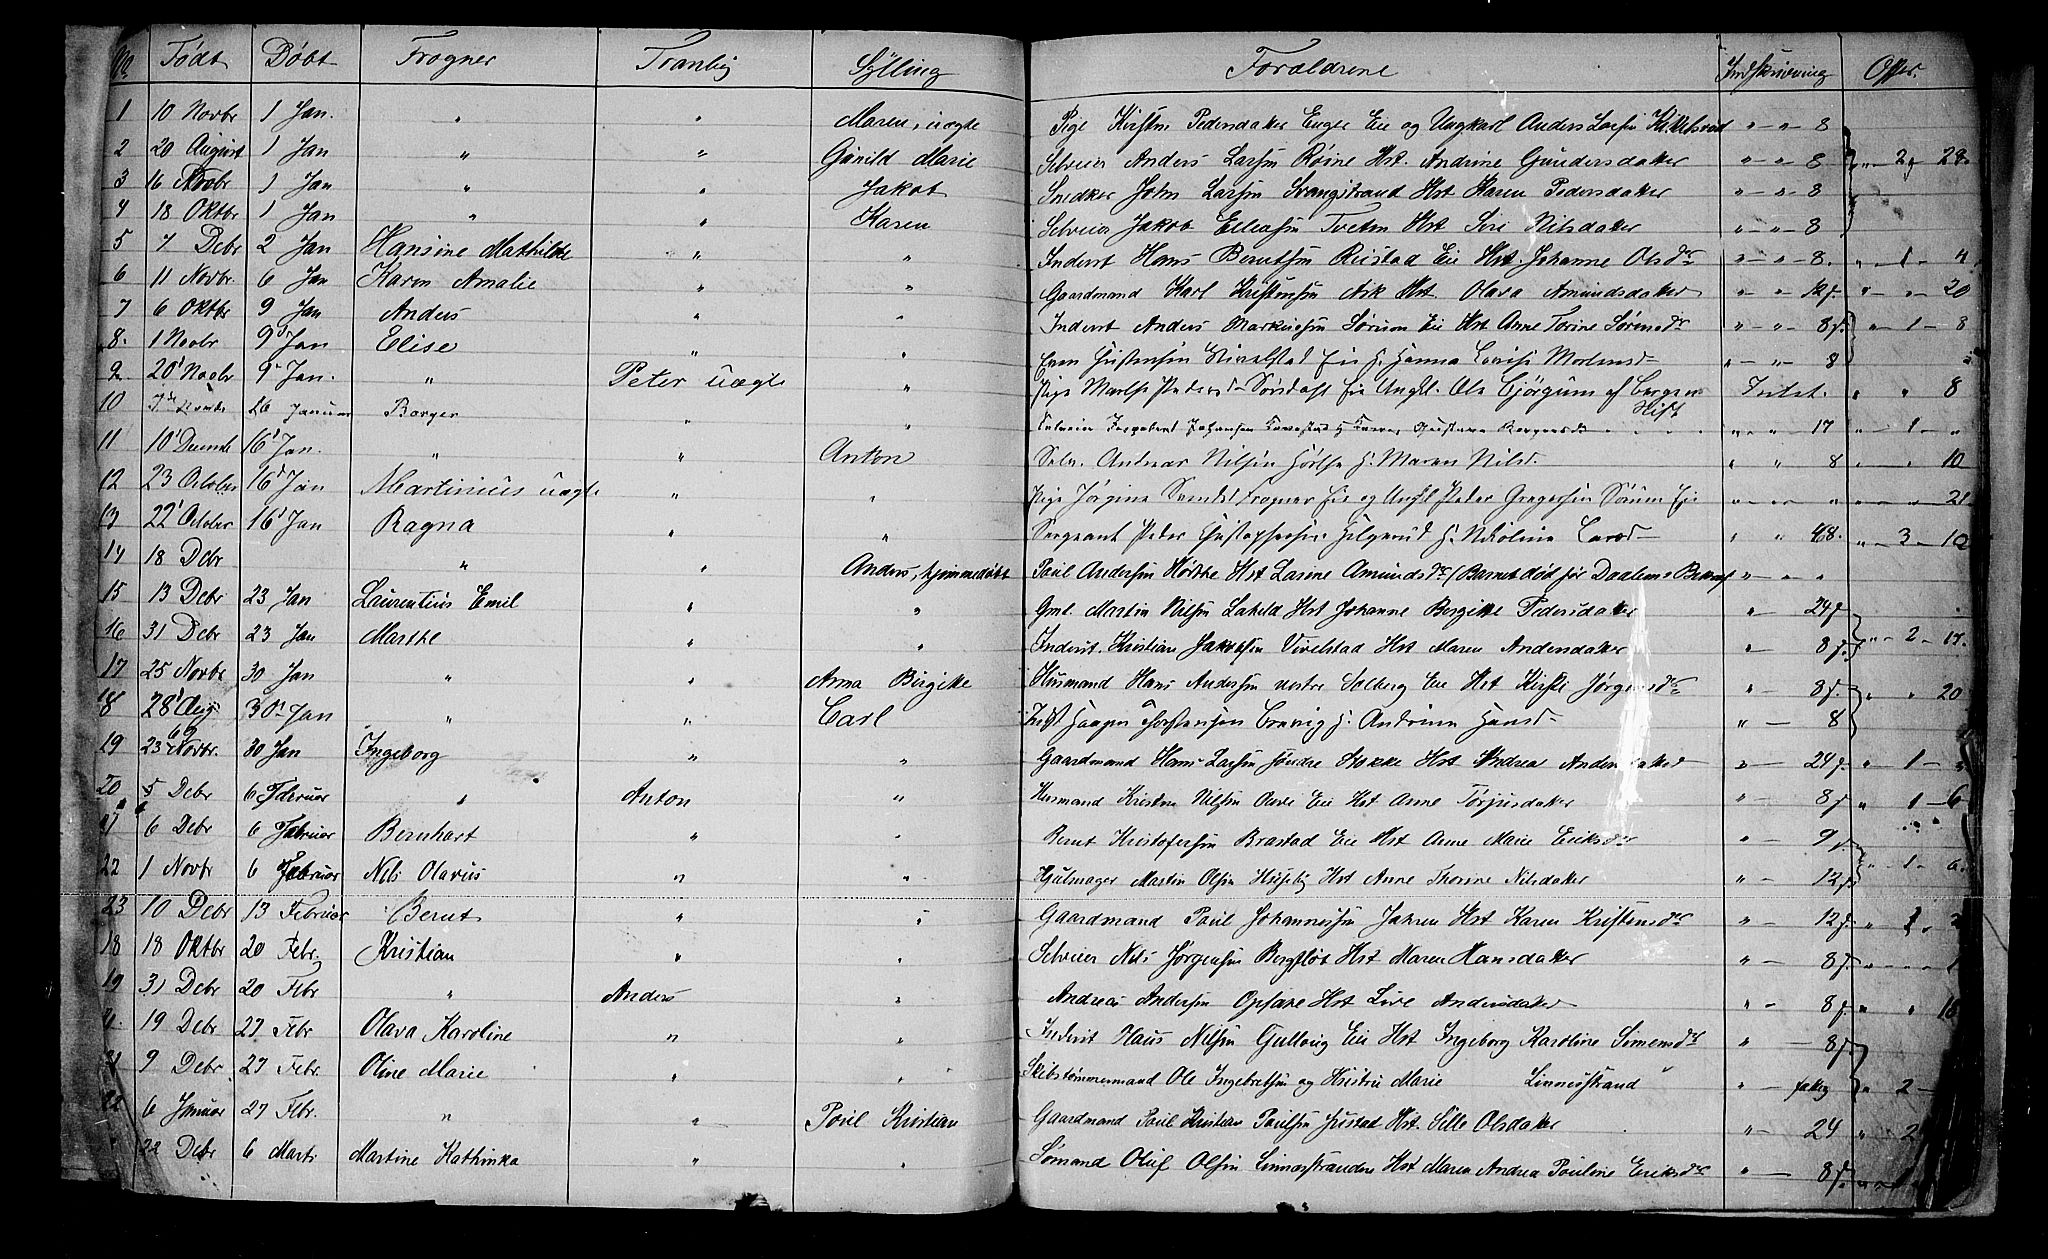 No Født Døbt Frogner Tranby Sylling Forældrene Indskrivning Offer.
1 10 Novbr 1 Jan. " " Maren, uægte Pige Kirstine Pedersdatter Enger Eie og Ungkarl Anders Larsen " - " - 8
2 20 August 1 Jan " " Gunild Marie Selveier Anders Larsen Røine Hst. Andrine Gundersdatter " - " - 8 " - 2 - 28
3 16 Novbr 1 Jan " " Jakob Snedker John Larsen Svangstrand Hst Karen Pedersdatter " - " - 8
4 18 Oktbr 1 Jan " " Karen Selveier Jakob Tveten Hst Siri Nilsdatter " - " - 8
5 7 Debr 2 Jan Hansine Mathilde " " Inderst Hans Berntsen Rustad Eie Hst. Johanne Olsdr " - " - 8. " - 1 - 4
6 11 Novbr 6 Jan Karen Amalie " " Gaardmand Karl Kristensen Ask Hst Olava Amundsdatter " " 12 f. " - " - 20
7 6 Oktbr 9 Jan Anders " " Inderst Anders Markusen Sørum Eie Hst Anne Torine Sørensdr " - " - 8 f. " - 1 - 8
8. 1 Novbr 9 Jan Elise " " Even Justensen Eie H. Hanna Lovise Mortensd " - " 8
9 20 Novbr 9 Jan. " Peter uægte " Pige Marthe Pedersd Eie Ungkl. Ole Bjørgum af Bergen Stift Intet. " " 8
10 26 Januar Borger " " Johansen H. " - " 17 " - 1 - "
11 10 Decmbr 16 Jan. " " Anton Selv. Andreas Nilsen H. Maren Nilsd. " " 8 " - " 10
12 23 October 16 Jan Martinius uægt. " " Pige Jørgine Frogner Eie og Ungkl Peder Gregersen Sørum Eie " " " " - " - 21
13 22 October 16 Jan Ragna " " Sergeant Peder Gustavsen H. Nikoline Larsd " " 48. " - 3 - 12
14 18 Debr " " Anders, hjemmedøbt Poul Andersen Hørthe Hst Lasine Amundsdr (Barnet død før Daabens Bekræf " - " "
15 13 Debr 23 Jan Laurentius Emil " " Gmd. Martin Nilsen Laheld Hst Johanne Birgitte Pedersdatter " - 24 f
16 31 Debr 23 Jan Marthe " " Inderst. Kristian Jakobsen Vivelstad Hst Maren Andersdatter " - 8 f. " - 2 - 17.
17 25 Novbr 30 Jan " " Anna Birgitte Husmand Hans Andersen vestre Solberg Eie Hst Kirsti Jørgensdr " - 8 f. " " 20
18 28 Aug 69 30 Jan " " Carl Indst Haagen Torstensen H. Andrine Hansd " - 8
19 23 Novbr. 30 Jan Ingeborg " " Gaardmand Hans Larsen søndre Stokke Hst Andrea Andersdatter " - 24 f. " - 1 -
20 5 Debr 6 Februar " Anton " Husmand Kristen Nilsen Eie Hst Anne Torjusdatter " - 8 f " 1 - 6
21 6 Debr 6 Februar Bernhart " " Bernt Kristofersen Brastad Eie Hst Anne Marie Eriksdr " - 9 f.
22 1 Novbr 6 Februar Nils Olavius " " Hjulmager Martin Olsen Huseby Hst Anne Thorine Nilsdatter " - 12 f. " - 1 - 6
23 10 Debr 13 Februar Bernt " " Gaardmand Poul Johannesen Jahren Hst Karen Kristensdr " - 12 f. " 1 - 2
18 18 Oktbr 20 Febr. Kristian " " Selveier Nils Jørgensen Bergflødt Hst Maren Hansdatter " - 8 f. " - " -
19 31 Debr 20 Febr " Anders " Andreas Andersen Opsare Hst Live Andersdatter " - 8 f. " " 16
19 Debr 27 Febr Olava Karoline " " Inderst Hans Nilsen Gullaug Eie Hst Ingeborg Karoline Simensdr " - 8 f.
21 9 Debr 27 Febr Oline Marie " " Skibstømmermand Ole Ingebretsen og Hustru Marie Linnesstrand " - fattig " - 2 -
22 6 Januar 27 Febr. " " Poul Kristian Gaardmand Poul Kristian Poulsen Justad Hst. Sille Olsdatter " - 24 " - 2
22 Debr 6 Marts Martine Kathinka " " Sømand Oluf Olsen Linnesstranden Hst Maren Andrea Pouline Eriksdr " - 8 f.